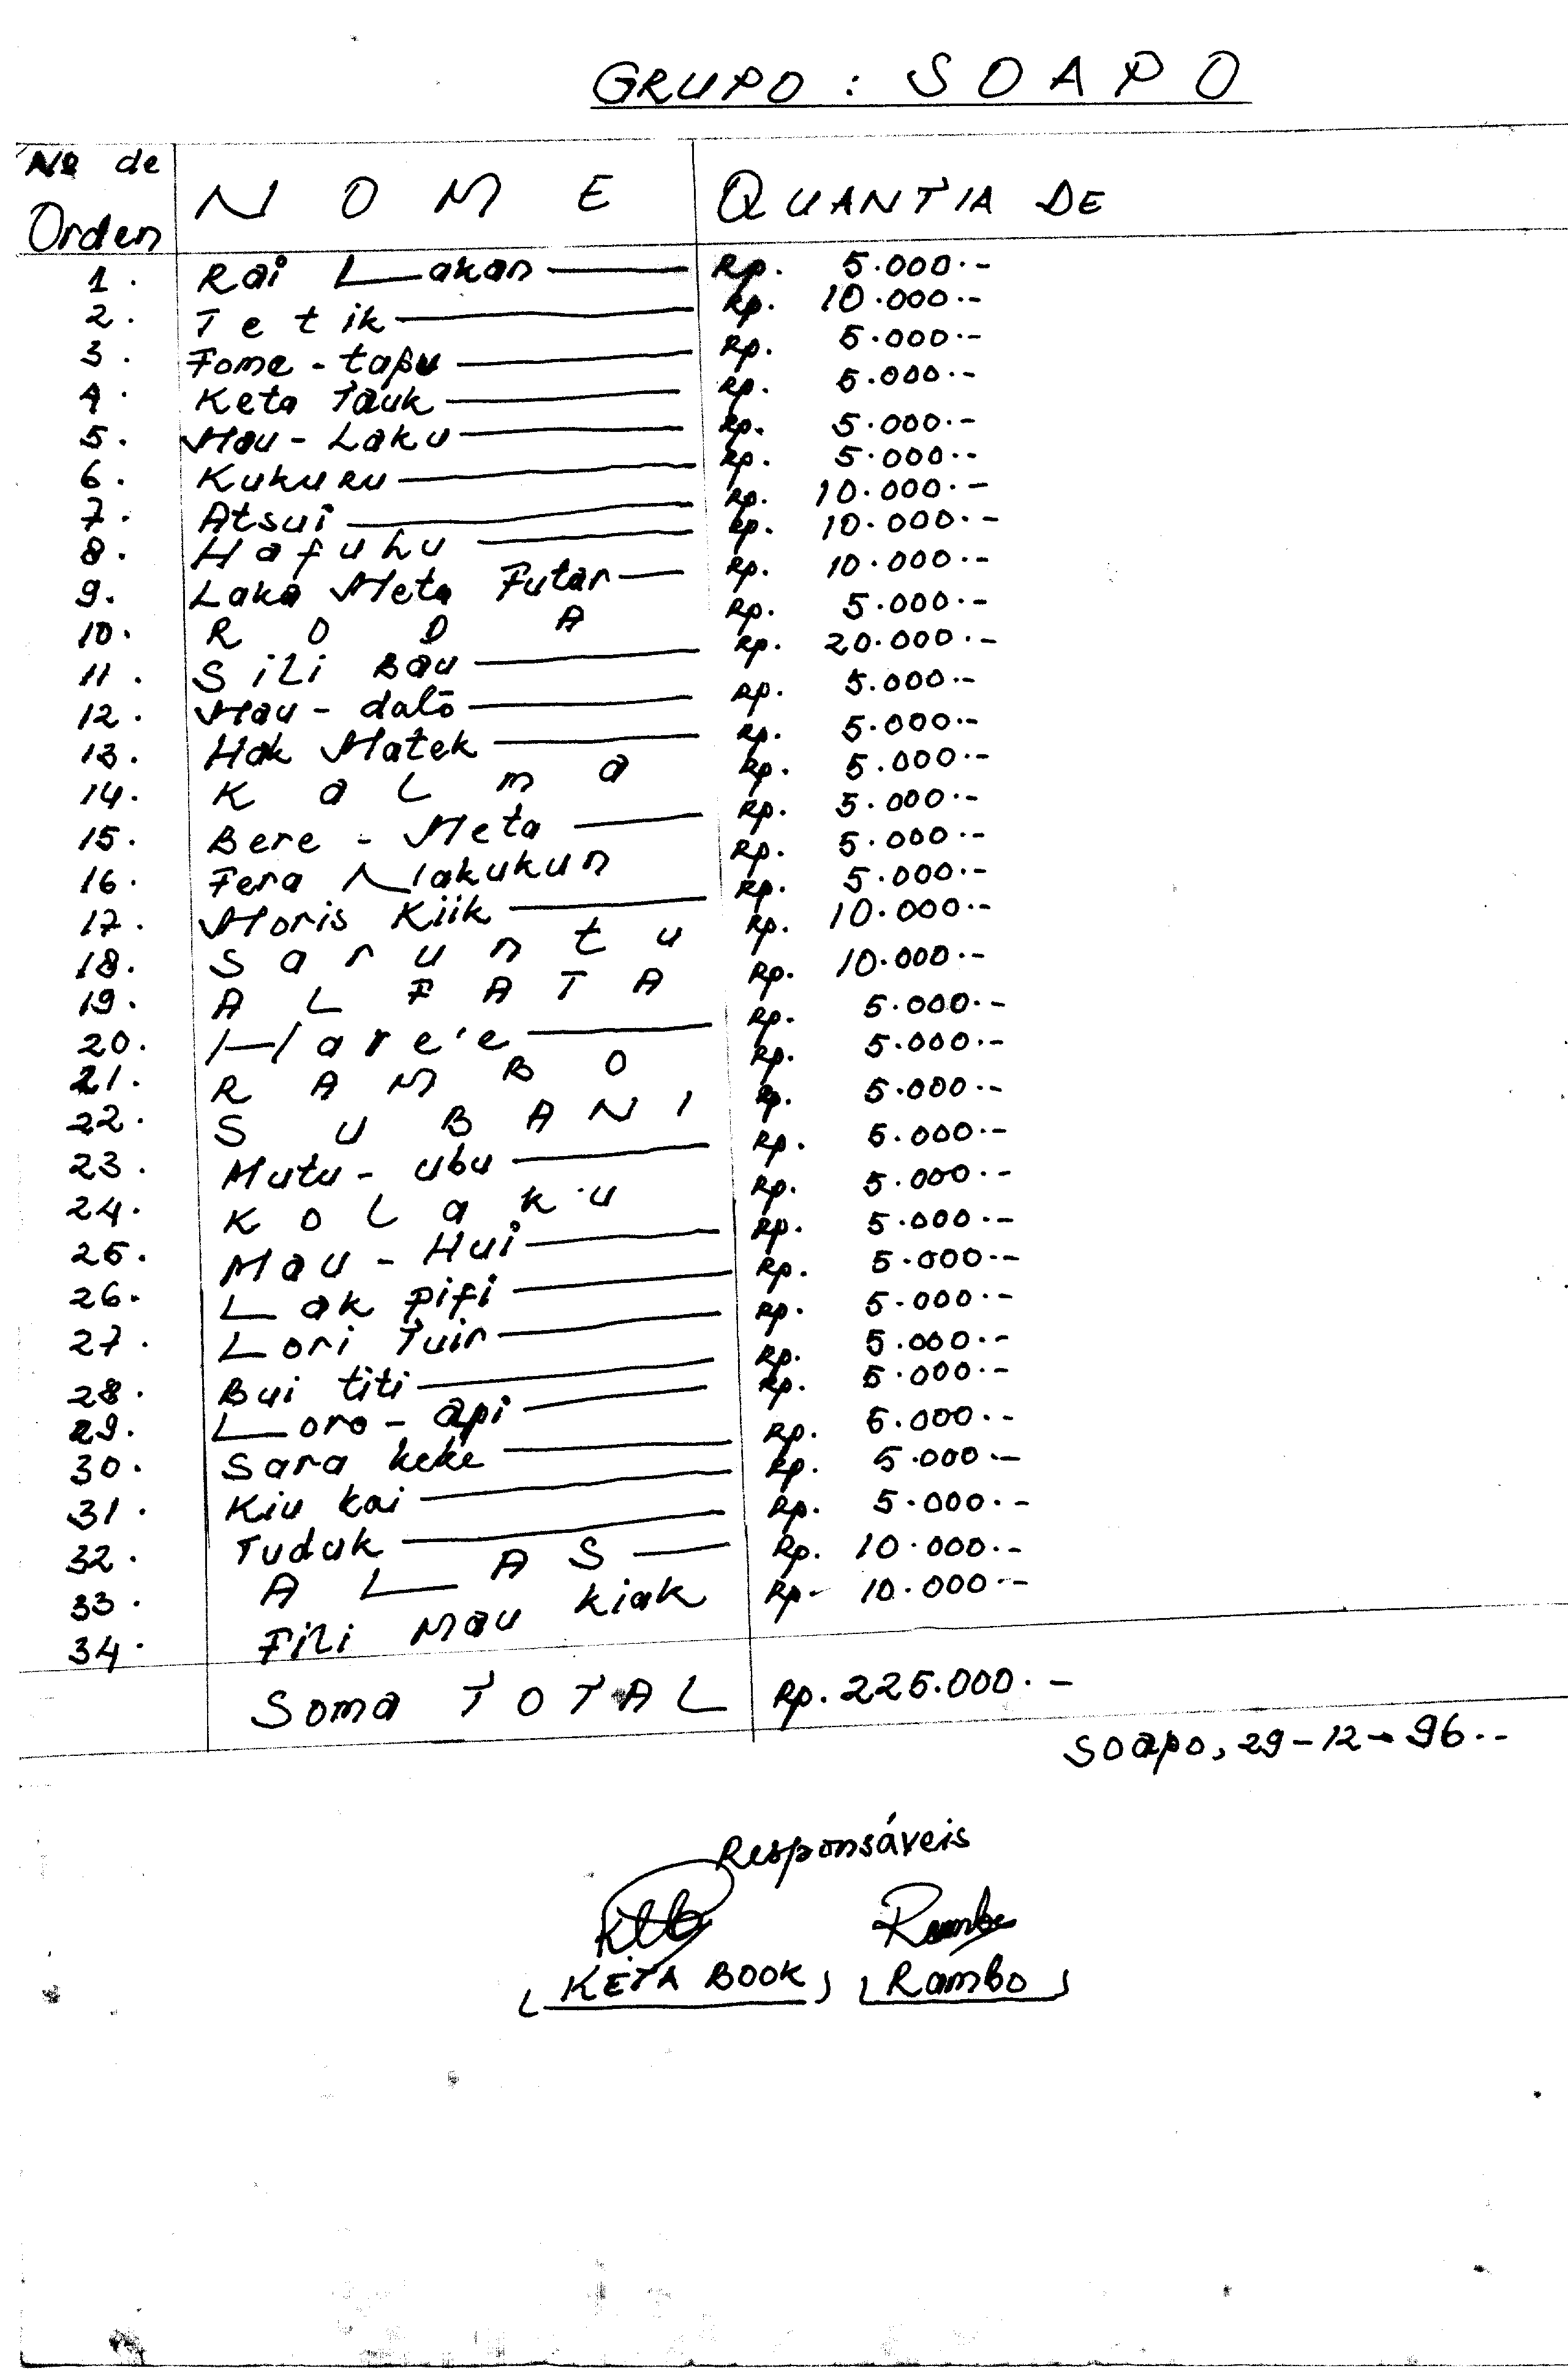 GRUPO : SOAPO
Nº de Orden NOME QUANTIA DE
1. Rai Lakan Rp. 5.000.-
2. Tetik Rp. 10.000.-
3. Fome - tafu Rp. 5.000.-
4. Keta Tauk Rp. 5.000.-
5. Mau - Laku Rp. 5.000.-
6. Kukuru Rp. 5.000.-
7. Atsui Rp. 10.000.-
8. Hafuhu Rp. 10.000.-
9. Laka Meta Futar Rp. 10.000.-
10. RODA Rp. 5.000.-
11. Sili Bau Rp. 20.000.-
12. Mau - dalo Rp. 5.000.-
13. Hak Matek Rp. 5.000.-
14. Kalma Rp. 5.000.-
15. Bere - Meta Rp. 5.000.-
16. Fera Nakukun Rp. 5.000.-
17. Moris Kiik Rp. 5.000.-
18. Saruntu Rp. 10.000.-
19. ALFATA Rp. 10.000.-
20. Hare'e Rp. 5.000.-
21. RAMBO Rp. 5.000.-
22. SUBANI Rp. 5.000.-
23. Mutu - ubu Rp. 5.000.-
24. Kolaku Rp. 5.000.-
25. Mau - Hui Rp. 5.000.-
26. Lak fifi Rp. 5.000.-
27. Lori Tuir Rp. 5.000.-
28. Bui titi Rp. 5.000.-
29. Loro - api Rp. 5.000.-
30. Sara keke Rp. 5.000.-
31. Kiu kai Rp. 5.000.-
32. Tuduk Rp. 5.000.-
33. ALAS Rp. 10.000.-
34. Fili Mau kiak Rp. 10.000.-
Soma TOTAL Rp. 225.000.-
Soapo, 29-12-96.-
Responsáveis
Rambo
(KETA BOOK) (Rambo)